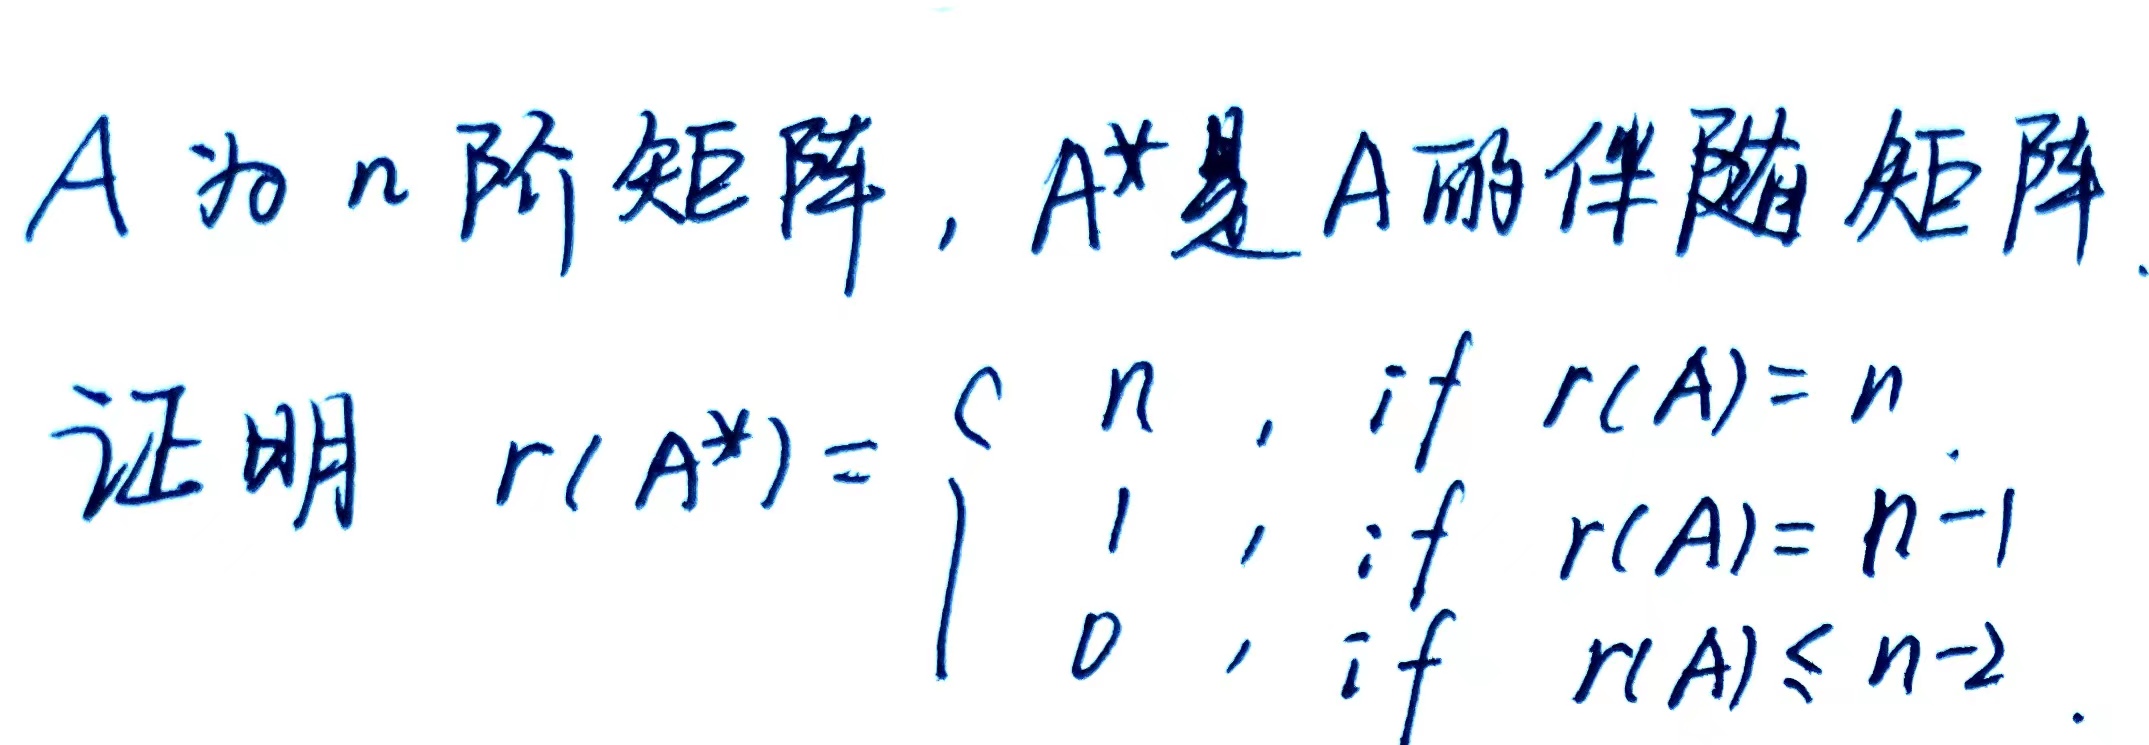 A 为 n 阶矩阵, A* 是 A 的伴随矩阵.
证明 r(A*) = { n , if r(A) = n.
1 , if r(A) = n-1
0 , if r(A) ≤ n-2.